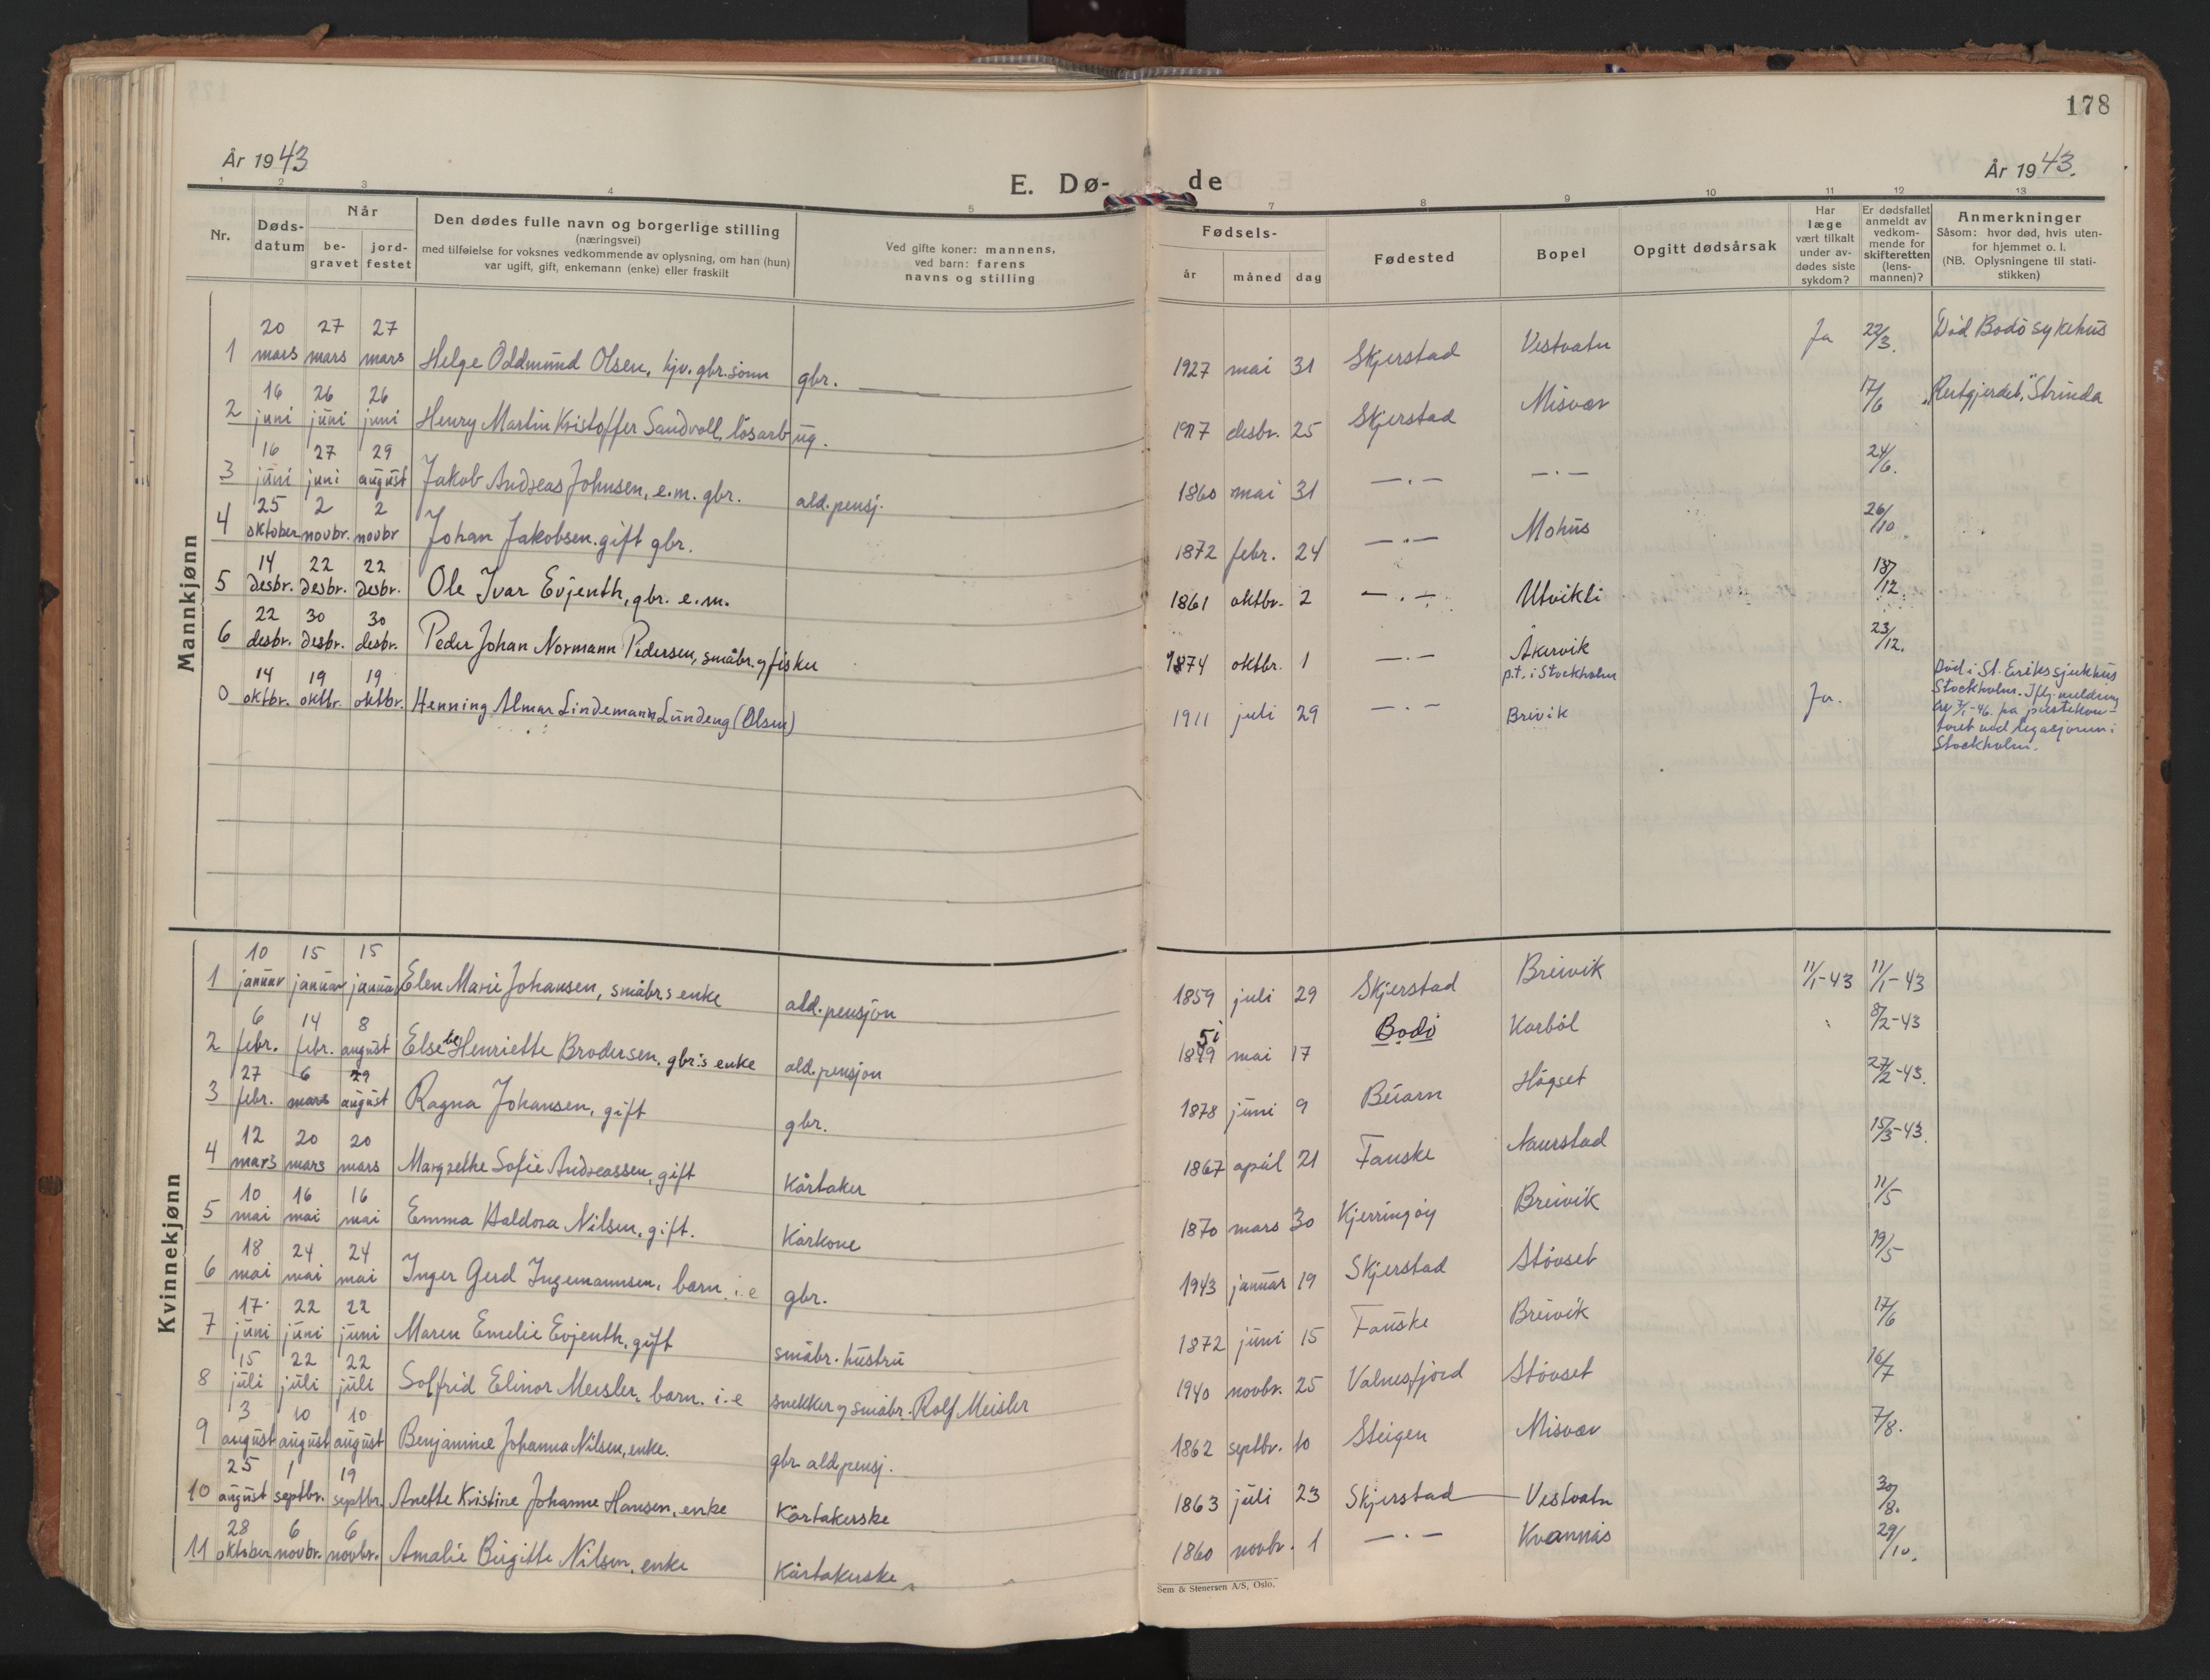 178
År 1943
E. Dø-de
År 1943.
1 2 3 4 5 7 8 9 10 11 12 13
Nr.
Døds-
datum
Når
be-
gravet
jord-
festet
Den dødes fulle navn og borgerlige stilling
(næringsvei)
med tilføielse for voksnes vedkommende av oplysning, om han (hun)
var ugift, gift, enkemann (enke) eller fraskilt
Ved gifte koner: mannens,
ved barn: farens
navns og stilling
Fødsels-
år måned dag
Fødested
Bopel
Opgitt dødsårsak
Har
læge
vært tilkalt
under av-
dødes siste
sykdom?
Er dødsfallet
anmeldt av
vedkom-
mende for
skifteretten
(lens-
mannen)?
Anmerkninger
Såsom: hvor død, hvis uten-
for hjemmet o. l.
(NB. Oplysningene til stati-
stikken)
Mannkjønn
1 20 mars 27 mars 27 mars Helge Oddmund Olsen, hjv. gbr. sønn gbr. 1927 mai 31 Skjerstad Vestvatn Ja 22/3. Död Bodö sykehus
2 16 juni 26 juni 26 juni Henry Martin Kristoffer Sandvoll, lösarb ug. 1917 desbr. 25 Skjerstad Misvær 17/6 Strinda
3 16 juni 27 juni 29 august Jakob Andreas Johnsen, e.m. gbr. ald. pensj. 1860 mai 31 —.— —.— 24/6.
4 25 oktober 2 novbr. 2 novbr Johan Jakobsen. gift gbr. 1872 febr. 24 —.— Mohus 26/10.
5 14 desbr. 22 desbr. 22 desbr. Ole Ivar Evjenth, gbr. e.m. 1861 oktbr. 2 —.— Utvikli 18/12.
6 22 desbr. 30 desbr. 30 desbr. Peder Johan Normann Pedersen, småbr. og fisker 1874 oktbr. 1 —.— Åkervik 23/12.
0 14 oktbr. 19 oktbr. 19 oktbr. Henning Almar Lindemann Lundeng (Olsen) 1911 juli 29 —.— p.t. i Stockholm
Breivik Ja. Död i St. Erikssjukhus
Stockholm. Iflg. melding
av 7/1-46. fra prestekon-
toret ved legasjonen i
Stockholm.
Kvinnekjønn
1 10 januar 15 januar 15 januar Elen Marie Johansen, småbr.s enke ald. pensjon 1859 juli 29 Skjerstad Breivik 11/1-43 11/1-43
2 6 febr. 14 febr. 8 august Elsebe Henriette Brodersen, gbr.s enke ald. pensjon 1849 mai 17 Bodö Karböl 8/2-43
3 27 febr. 6 mars 29 august Ragna Johansen, gift gbr. 1878 juni 9 Beiarn Högset 27/2-43.
4 12 mars 20 mars 20 mars Margrethe Sofie Andreassen, gift Kårtaker 1867 april 21 Fauske Naurstad 15/3-43.
5 10 mai 16 mai 16 mai Emma Haldora Nilsen, gift. Kårkone 1870 mars 30 Kjerringöy Breivik 11/5
6 18 mai 24 mai 24 mai Inger Gerd Ingemannsen, barn i.e gbr. 1943 januar 19 Skjerstad Stövset 19/5
7 17 juni 22 juni 22 juni Maren Emelie Evjenth, gift småbr. hustru 1872 juni 15 Fauske Breivik 17/6
8 15 juli 22 juli 22 juli Solfrid Elinor Meisler, barn. i.e snekker og småbr. Rolf Meisler 1940 novbr. 25 Valnesfjord Stövset 16/7
9 3 august 10 august 10 august Benjamine Johanna Nilsen, enke. gbr ald pensj. 1862 septbr. 10 Steigen Misvær 7/8.
10 25 august 1 septbr. 19 septbr. Anette Kristine Johanne Hansen, enke Kårtakerske 1863 juli 23 Skjerstad Vestvatn 30/8.
11 28 oktober 6 novbr. 6 novbr. Amalie Birgitte Nilsen, enke Kårtakerske 1860 novbr. 1 —.— Kvannås 29/10.
Sem & Stenersen A/S, Oslo.